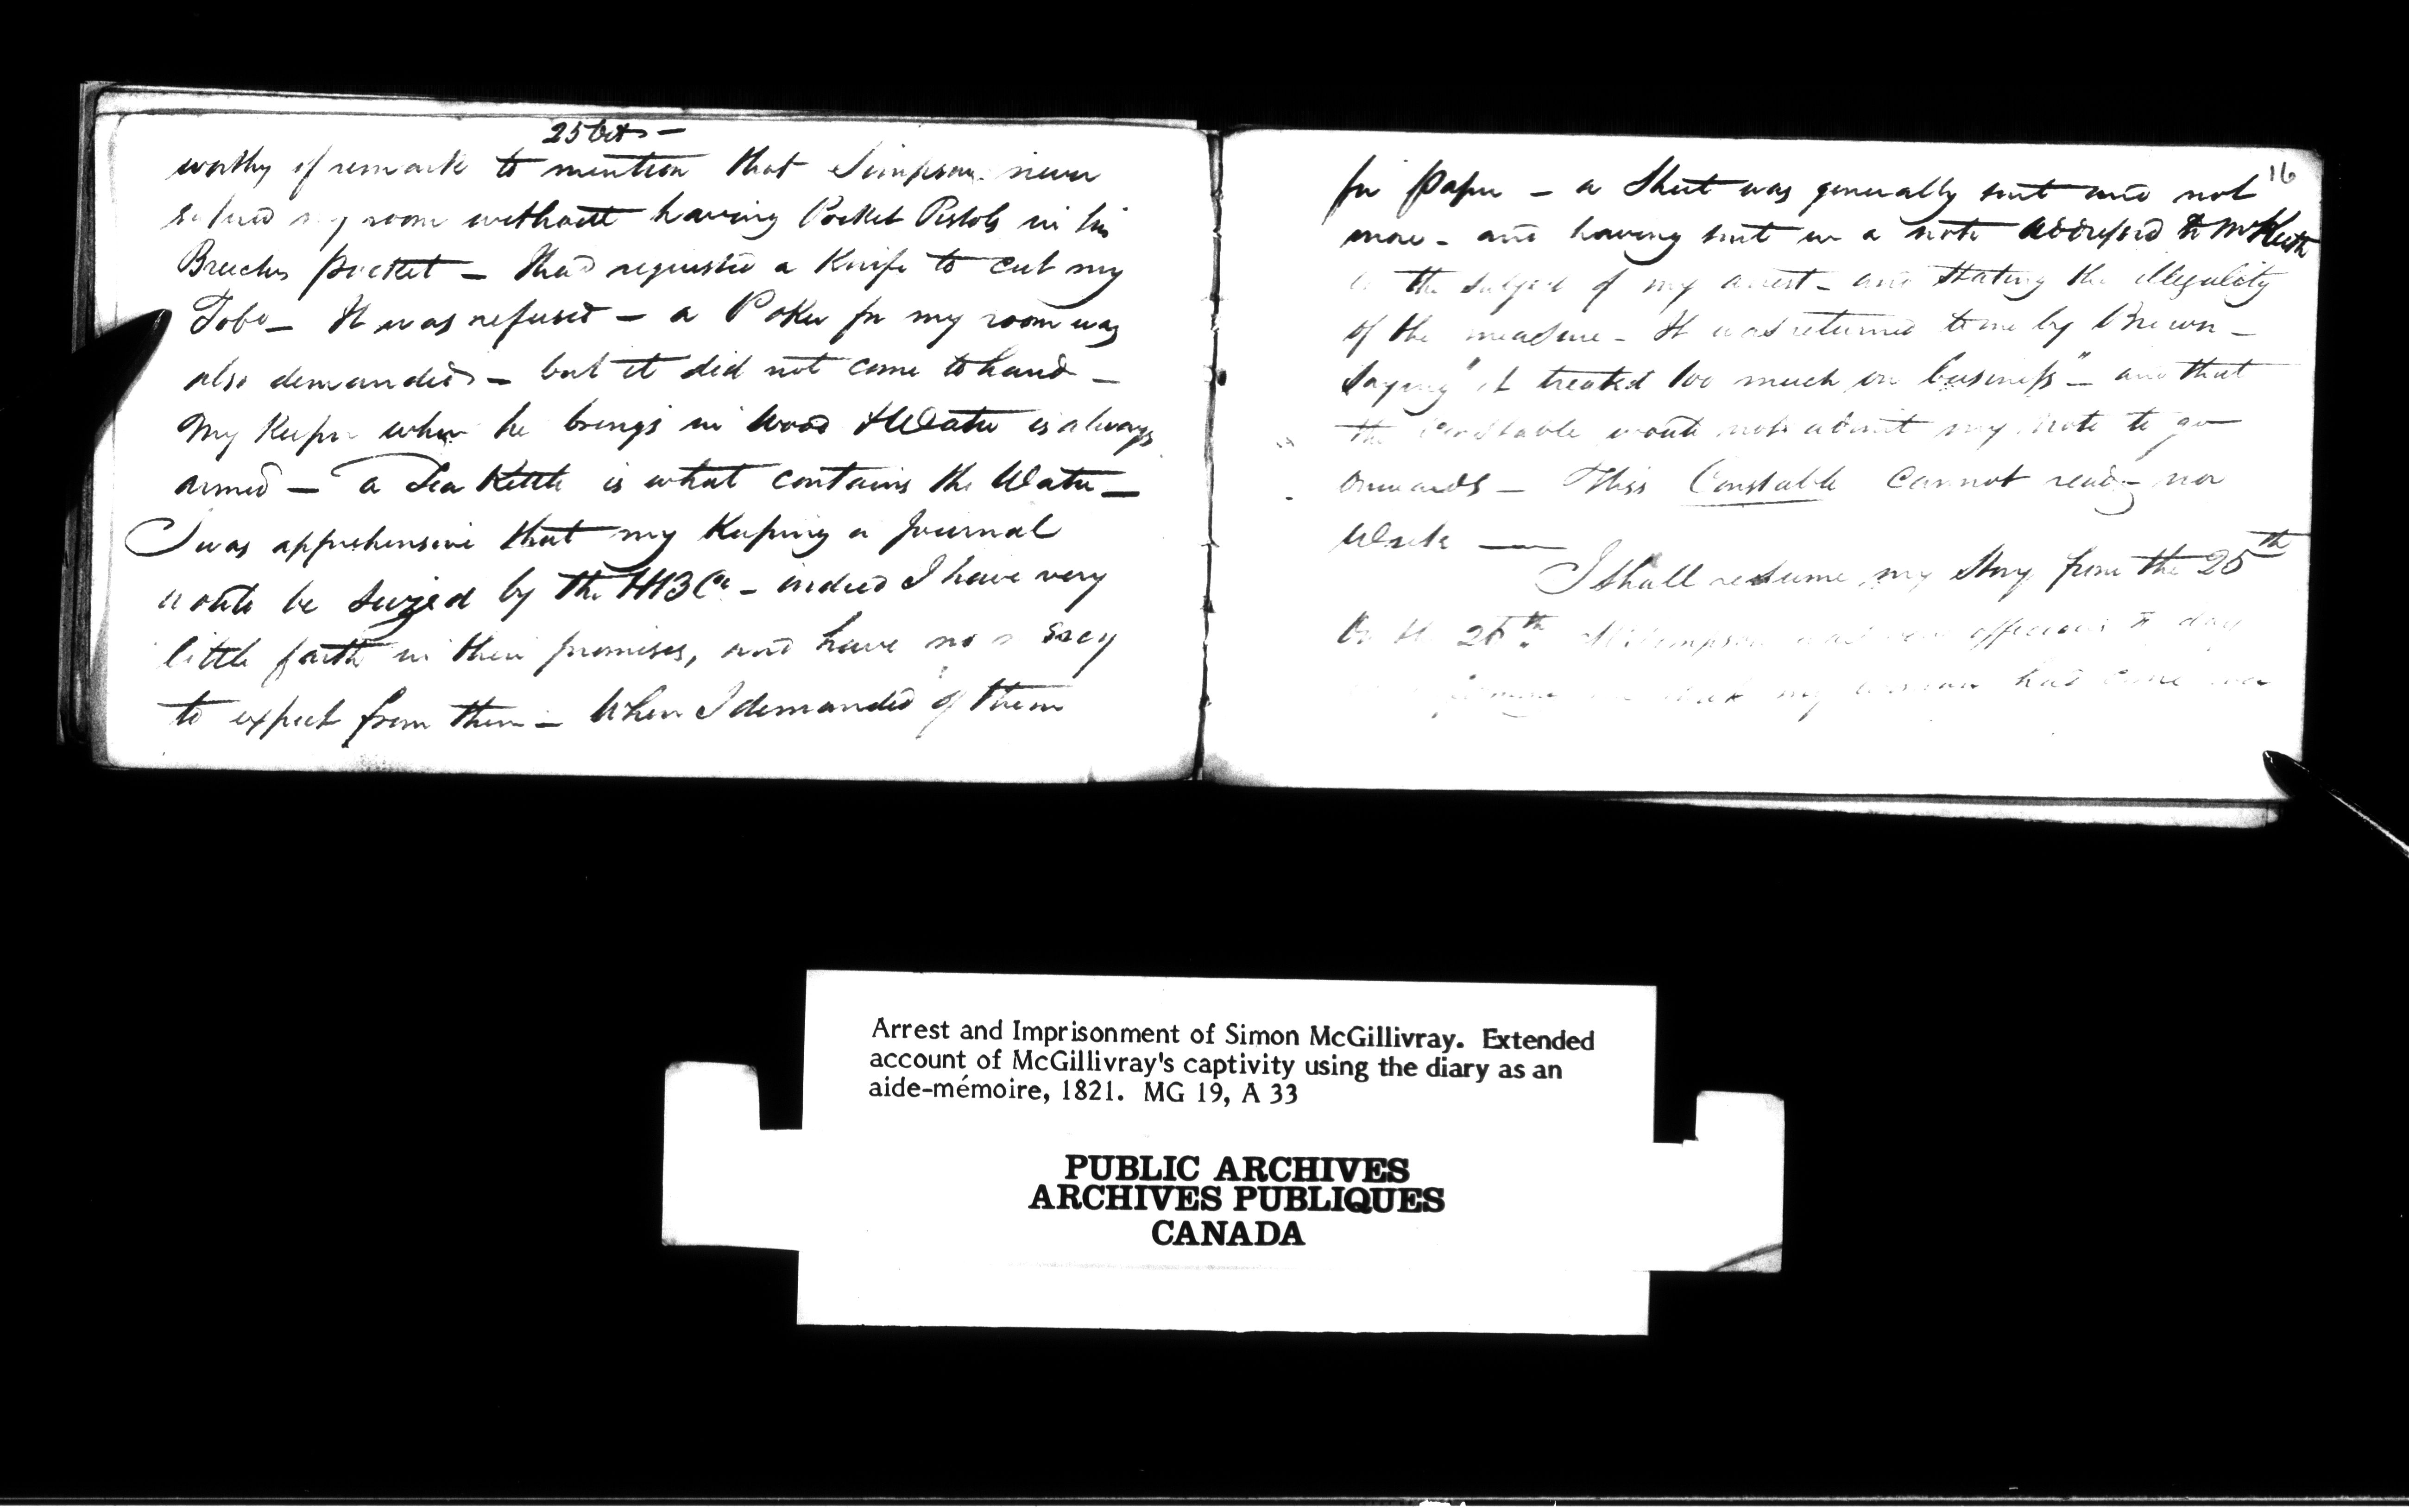 25 Oct —
worthy of remark to mention that Simpson never
entered my room without having Pocket Pistols in his
Breeches pocket — I had requested a Knife to cut my
Tobo — It was refused — a Poker for my room was
also demanded — but it did not come to hand —
My Keeper when he brings in Wood & Water is always
armed — a Tea Kettle is what contains the Water —
I was apprehensive that my Keeping a Journal
would be Seized by the HB Co — indeed I have very
little faith in their promises, and have no
to expect from them — When I demanded of them
16
for Paper — a Sheet was generally sent and not
more — and having sent in a note addressed to Mr Keith
on the subject of my arrest — and stating the illegality
of the measure — It was returned to me by Brown —
Saying "it treated too much on business" — and that
the Constable would not admit my Note to go
Onwards — This Constable cannot read — nor
Write —
I shall resume my Story from the 25th
On the 26th Mr Simpson was very officious to day
my woman had come
Arrest and Imprisonment of Simon McGillivray. Extended
account of McGillivray's captivity using the diary as an
aide-mémoire, 1821. MG 19, A 33
PUBLIC ARCHIVES
ARCHIVES PUBLIQUES
CANADA